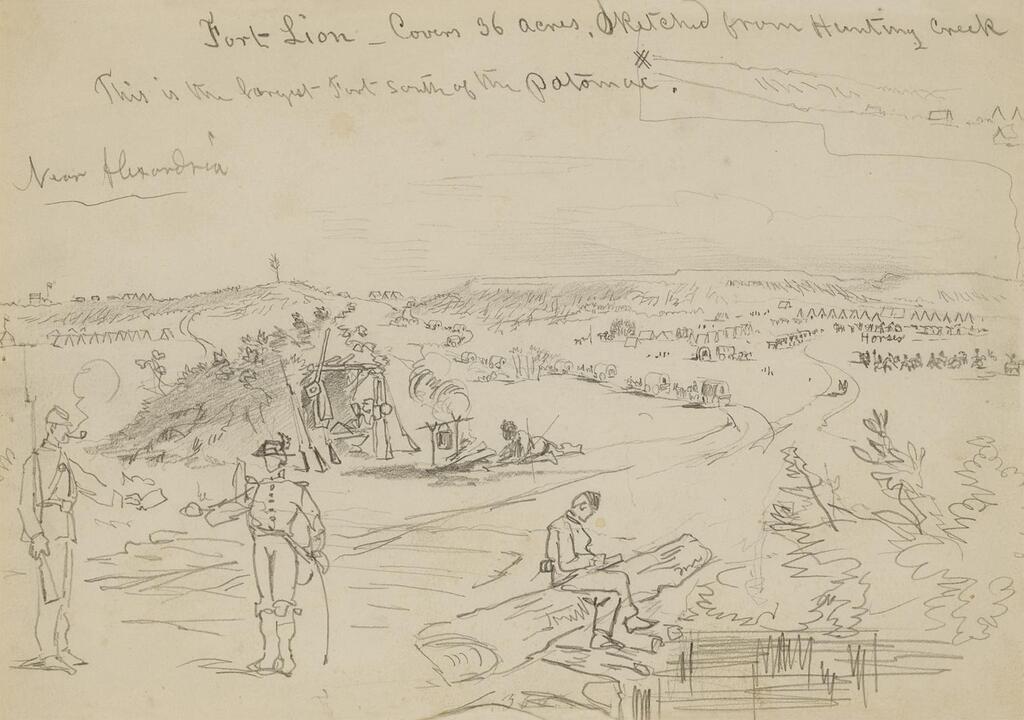 Fort Lion - Covers 36 acres. Sketched from Hunting Creek
This is the largest Fort south of the Potomac.
Near Alexandria
Horses